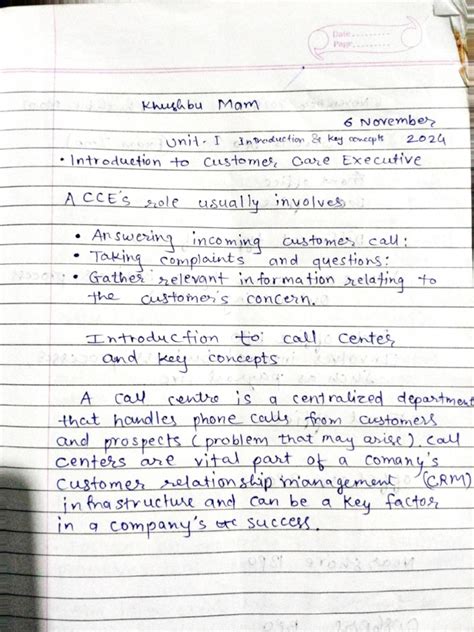 Date..........
Page..........
Khushbu Mam
6 November
Unit - I Introduction & Key concepts 2024
• Introduction to Customer Care Executive
A CCE's role usually involves
• Answering incoming customer call:
• Taking complaints and questions:
• Gather relevant information relating to
the customer's concern.
Introduction to: call center
and key concepts
A call centre is a centralized department
that handles phone calls from customers
and prospects (problem that may arise). Call
centers are vital part of a comany's
customer relationship management (CRM)
infrastructure and can be a key factor
in a company's success.